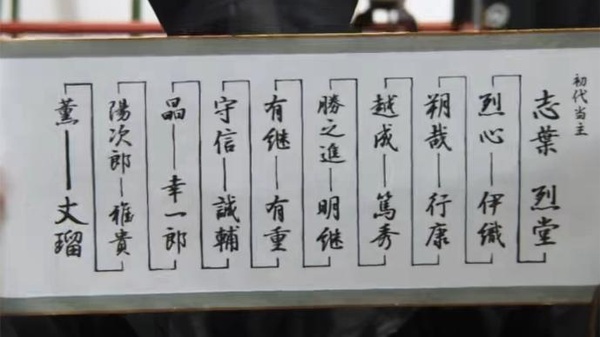 初代当主
志葉 烈堂
烈心―伊織
朔哉―行康
越成―篤秀
勝之進―明継
有継―有重
守信―誠輔
晶―幸一郎
陽次郎―雅貴
薫―丈瑠